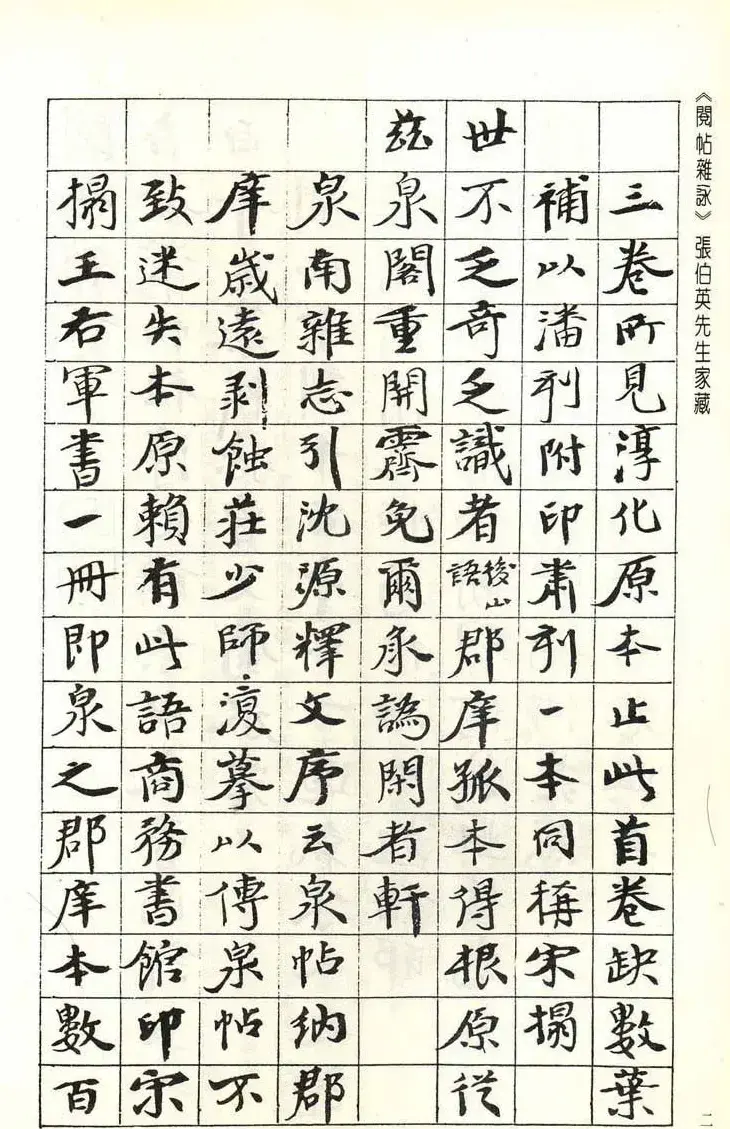 《閱帖雜詠》 張伯英先生家藏
三卷所見淳化原本止此首卷缺數葉
補以潘刻附印肅刻一本同稱宋搨
世不乏奇乏識者後山語郡庠孤本得根原從
茲泉閣重開霽免爾承譌閑者軒
泉南雜志引沈源釋文序云泉帖納郡
庠歲遠剥蝕莊少師復摹以傳泉帖不
致迷失本原賴有此語商務書館印宋
搨王右軍書一冊即泉之郡庠本數百